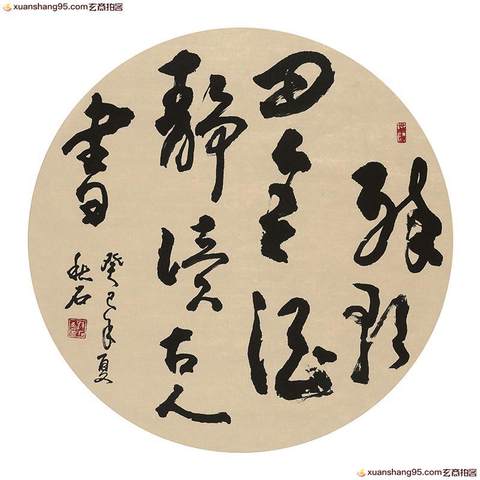 xuanshang95.com玄商拍客
醉歌
田舍酒
靜讀古人
書
癸巳年夏
秋石
xuanshang95.com玄商拍客